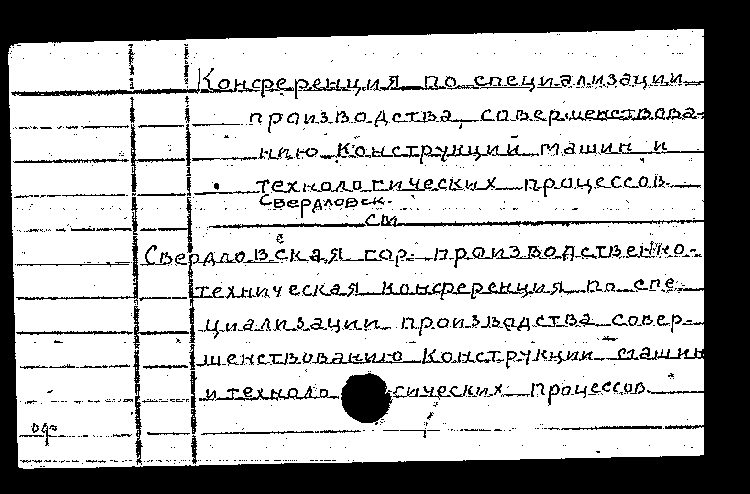 Конференция по специализации
производства, совершенствова-
нию конструкций машин и
технологических процессов.
Свердловск.
см
Свердловская гор. производственно-
техническая конференция по спе-
циализации производства совер-
шенствованию конструкции машин
и технологических процессов.